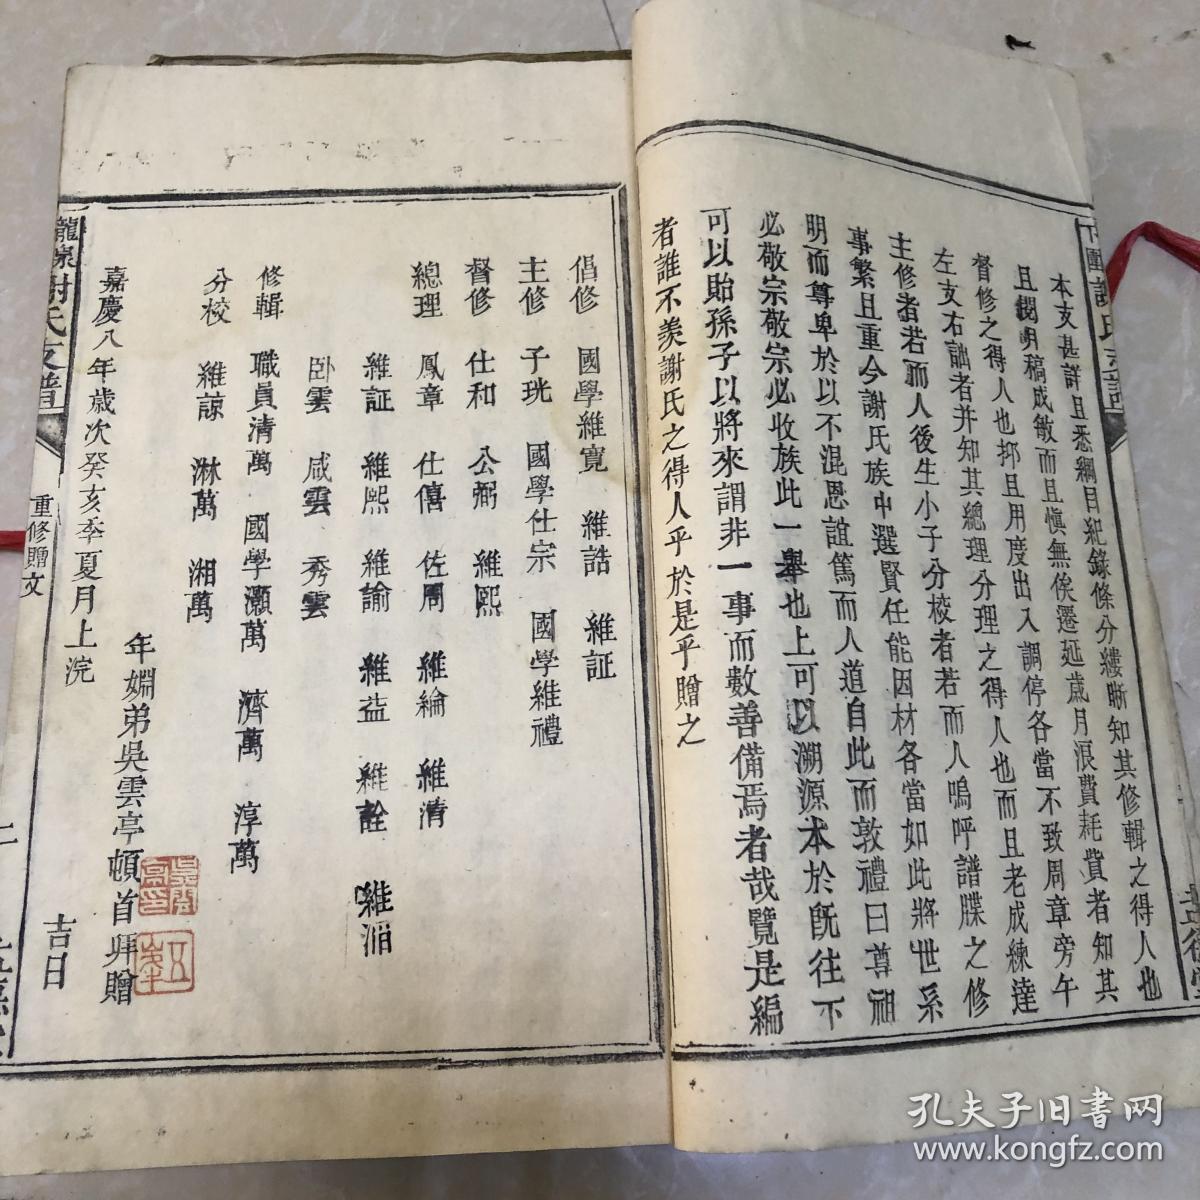 本支甚詳且悉綱目紀錄條分縷晰知其修輯之得人也
且閱明稿成敏而且慎無俟遷延歲月浪費耗費者知其
督修之得人也抑且用度出入調停各當不致周章旁午
左支右詘者并知其總理分理之得人也而且老成練達
主修者若而人後生小子分校者若而人嗚呼譜牒之修
事繁且重今謝氏族中選賢任能因材各當如此將世系
明而尊卑於以不混恩誼篤而人道自此而敦禮曰尊祖
必敬宗敬宗必收族此一舉也上可以溯源本於旣往下
可以貽孫子以將來謂非一事而數善備焉者哉覽是編
者誰不羨謝氏之得人乎於是乎贈之
倡修 國學維寬 維誥 維証
主修 子珖 國學仕宗 國學維禮
督修 仕和 公弼 維熙
總理 鳳章 仕僖 佐周 維綸 維清
維証 維熙 維諭 維益 維詮 維湘
臥雲 咸雲 秀雲
修輯 職員清萬 國學灝萬 濟萬 淳萬
分校 維諒 淋萬 湘萬
年姻弟吳雲亭頓首拜贈
嘉慶八年歲次癸亥季夏月上浣 吉日
龍泉謝氏支譜 重修贈文 二
孔夫子旧书网
www.kongfz.com